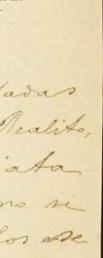 adas
Realito,
iata
no se
los de